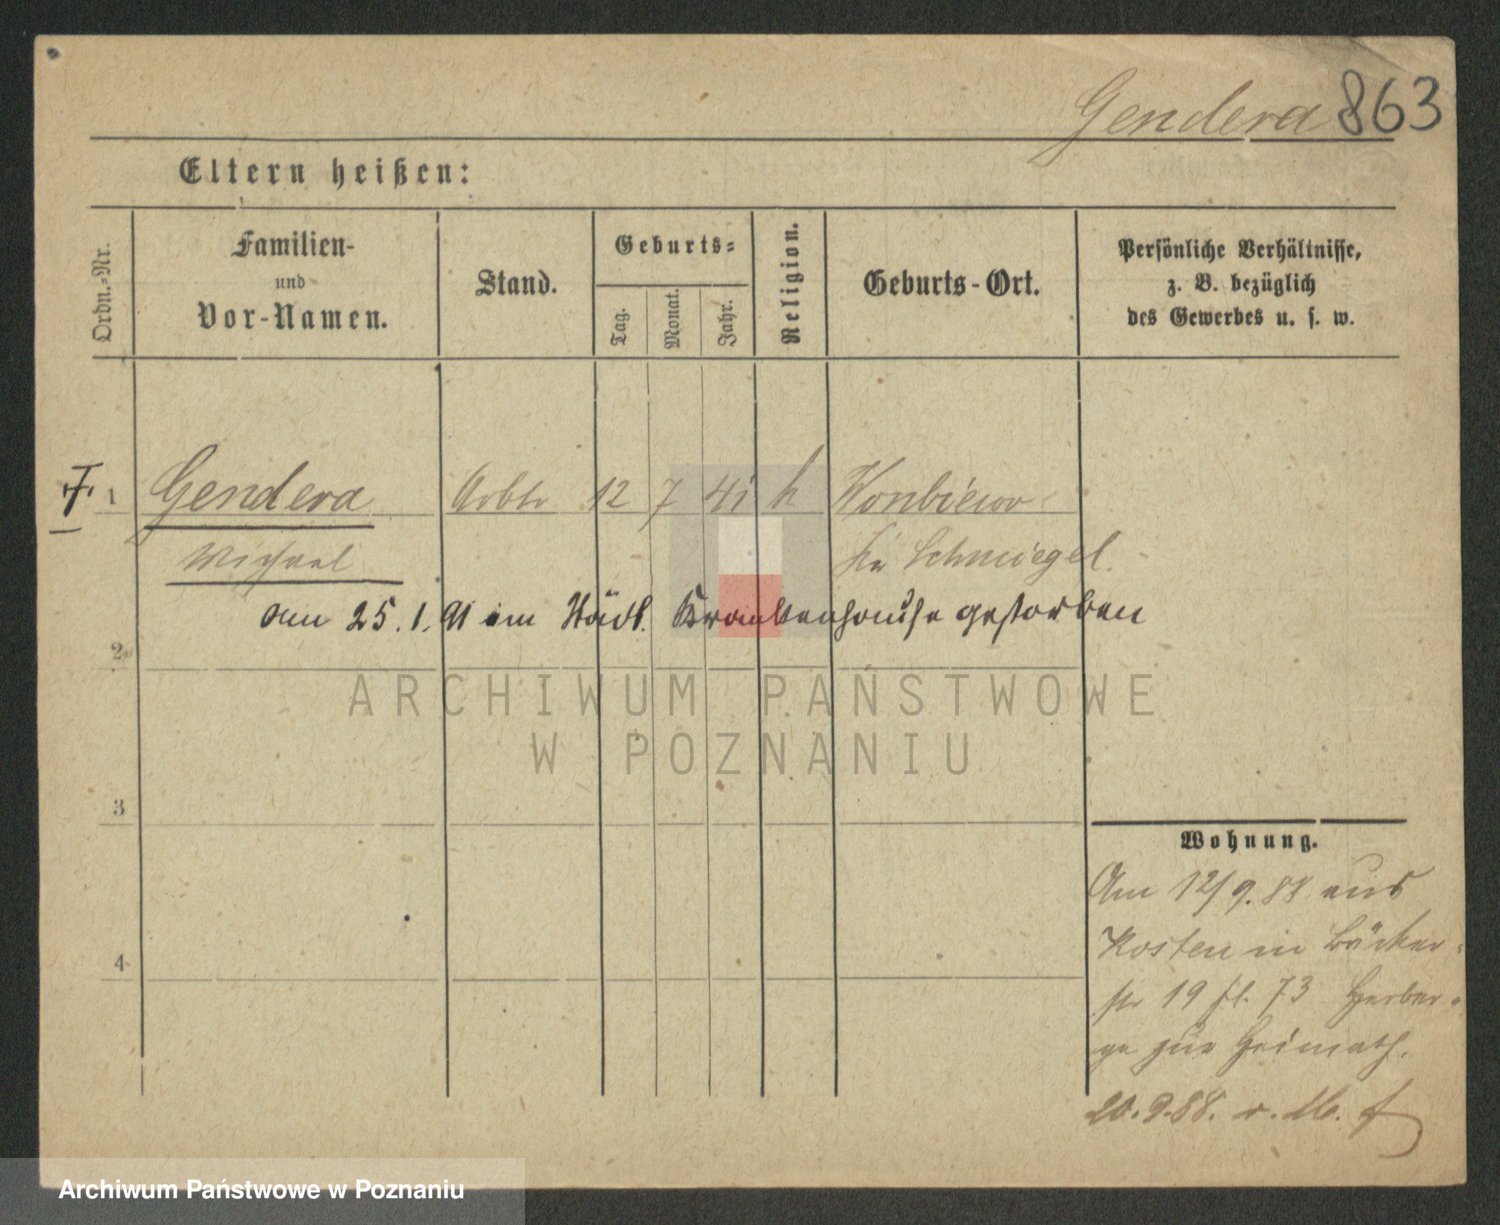 Gendera 863
Eltern heißen:
Ordn.-Nr.
Familien-
und
Vor-Namen.
Stand.
Geburts-
Tag.
Monat.
Jahr.
Religion.
Geburts-Ort.
Persönliche Verhältnisse,
z. B. bezüglich
des Gewerbes u. s. w.
1 Gendera Arbtr 12 7 41 k Wonbiewo
Michael Kr Schmiegel
am 25. 1. 91 im Städt. Krankenhause gestorben
2
ARCHIWUM PAŃSTWOWE
W POZNANIU
3
Wohnung.
Am 12/9. 88 aus
Kosten in Bäcker-
str 19 fl. 73 Herber-
ge zur Heimath.
4
20. 9. 88. v. M.
Archiwum Państwowe w Poznaniu